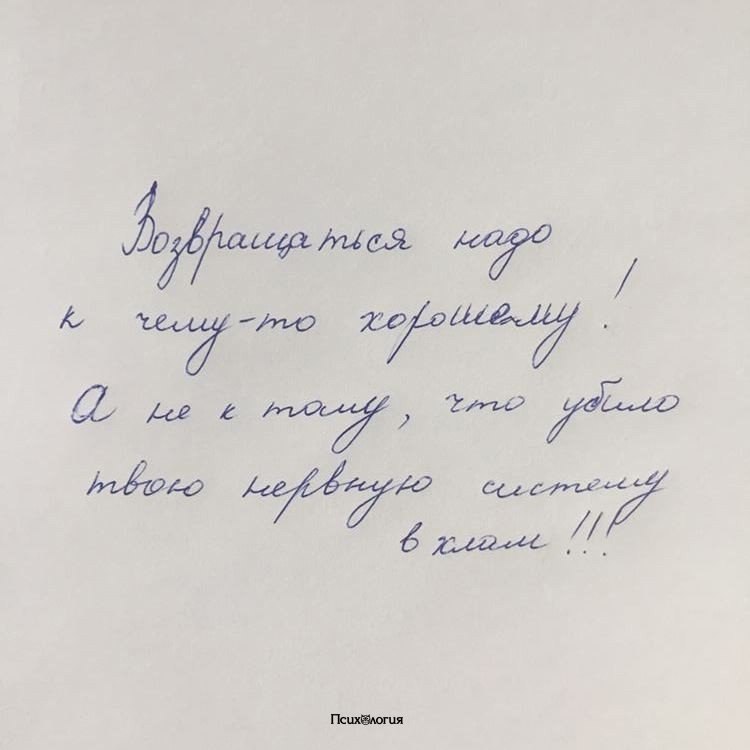 Возвращаться надо
к чему-то хорошему!
А не к тому, что убило
твою нервную систему
в хлам!!!
Психология